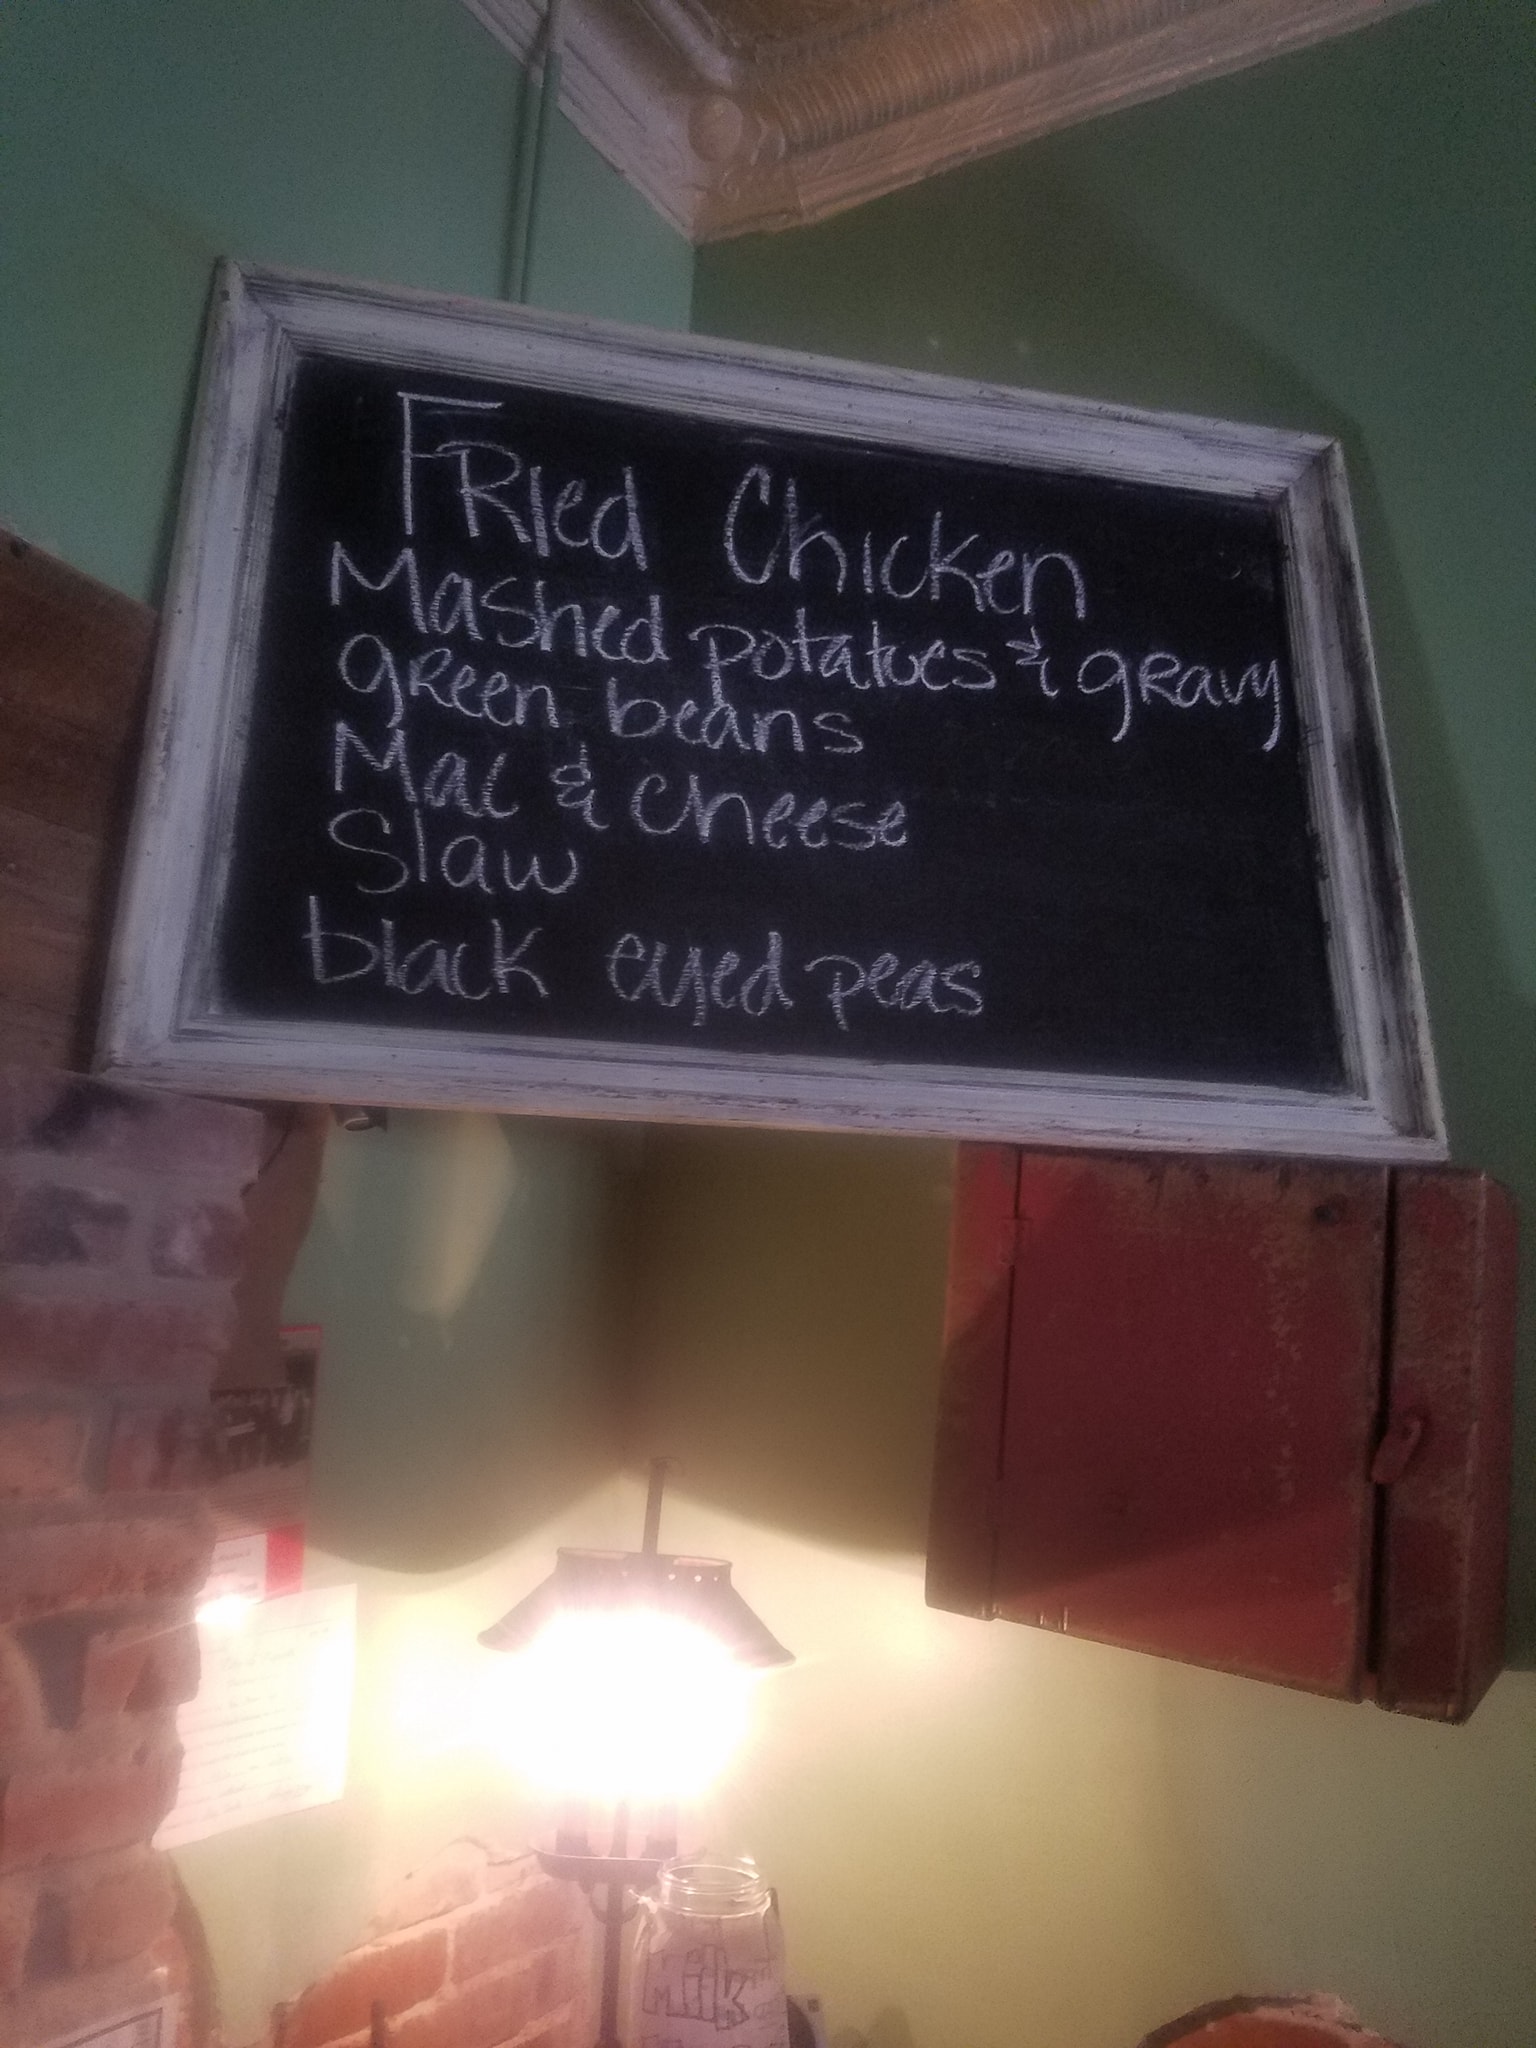 FRIed Chicken
Mashed potatoes & gravy
green beans
Mac & cheese
Slaw
black eyed peas
Milk